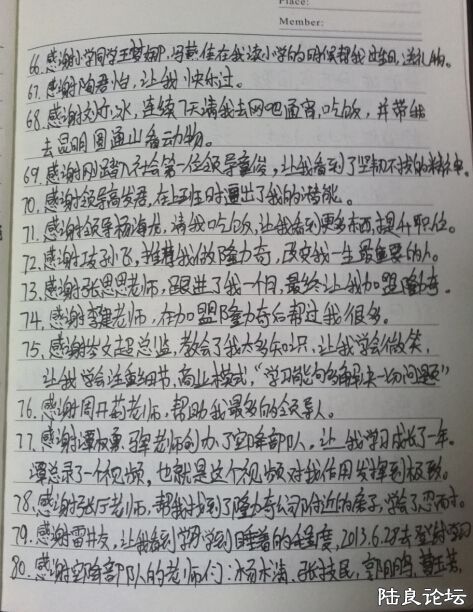 Place:
Member:
66.感谢小学同学王梦娜,冯燕佳在我读小学的时候帮我过生日,送礼物。
67.感谢陶君怡,让我快乐过。
68.感谢刘冰,连续7天请我去网吧通宵,吃饭,并带我
去昆明圆通山看动物。
69.感谢刚踏入社会第一位领导董俊,让我看到了坚韧不拔的精神。
70.感谢领导高发君,在上班时逼出了我的潜能。
71.感谢领导杨海龙,请我吃饭,让我看到更多东西,提升职位。
72.感谢孙飞,推荐我做隆力奇,改变我一生最重要的人。
73.感谢张思思老师,跟进了我一个月,最终让我加盟隆力奇。
74.感谢李建老师,在加盟隆力奇后帮过我很多。
75.感谢岑文超总监,教会了我太多知识,让我学会微笑,
让我学会注重细节,商业模式,“学习能句多解决一切问题”
76.感谢周开菊老师,帮助我最多的领导人。
77.感谢谭权勇老师创办了空降部队,让我学习成长了一年。
谭总录了一个视频,也就是这个视频对我作用发挥到极致。
78.感谢张老师,帮我找到了隆力奇公司附近的房子,学会了忍耐。
79.感谢雷井友,让我看到学习学到睡着的态度,2013.6.28去登封学习
80.感谢空降部队的老师们:杨水清,张技民,郭鹏鹏,曹玉芳,
陆良论坛